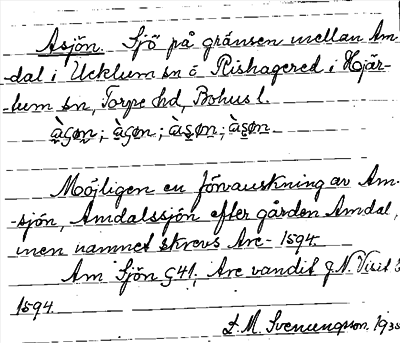 Asjön. Sjö på gränsen mellan Am-
-dal i Ucklum sn o Rishagered i Hjär-
-tum sn, Torpe hd, Bohus l.
Möjligen en förvanskning av Am-
-sjön, Amdalssjön efter gården Amdal,
men namnet skrevs Are- 1594.
Am Sjön G41; Are vandit g.N. Visit
1594.
F. M. Svenungsson. 193